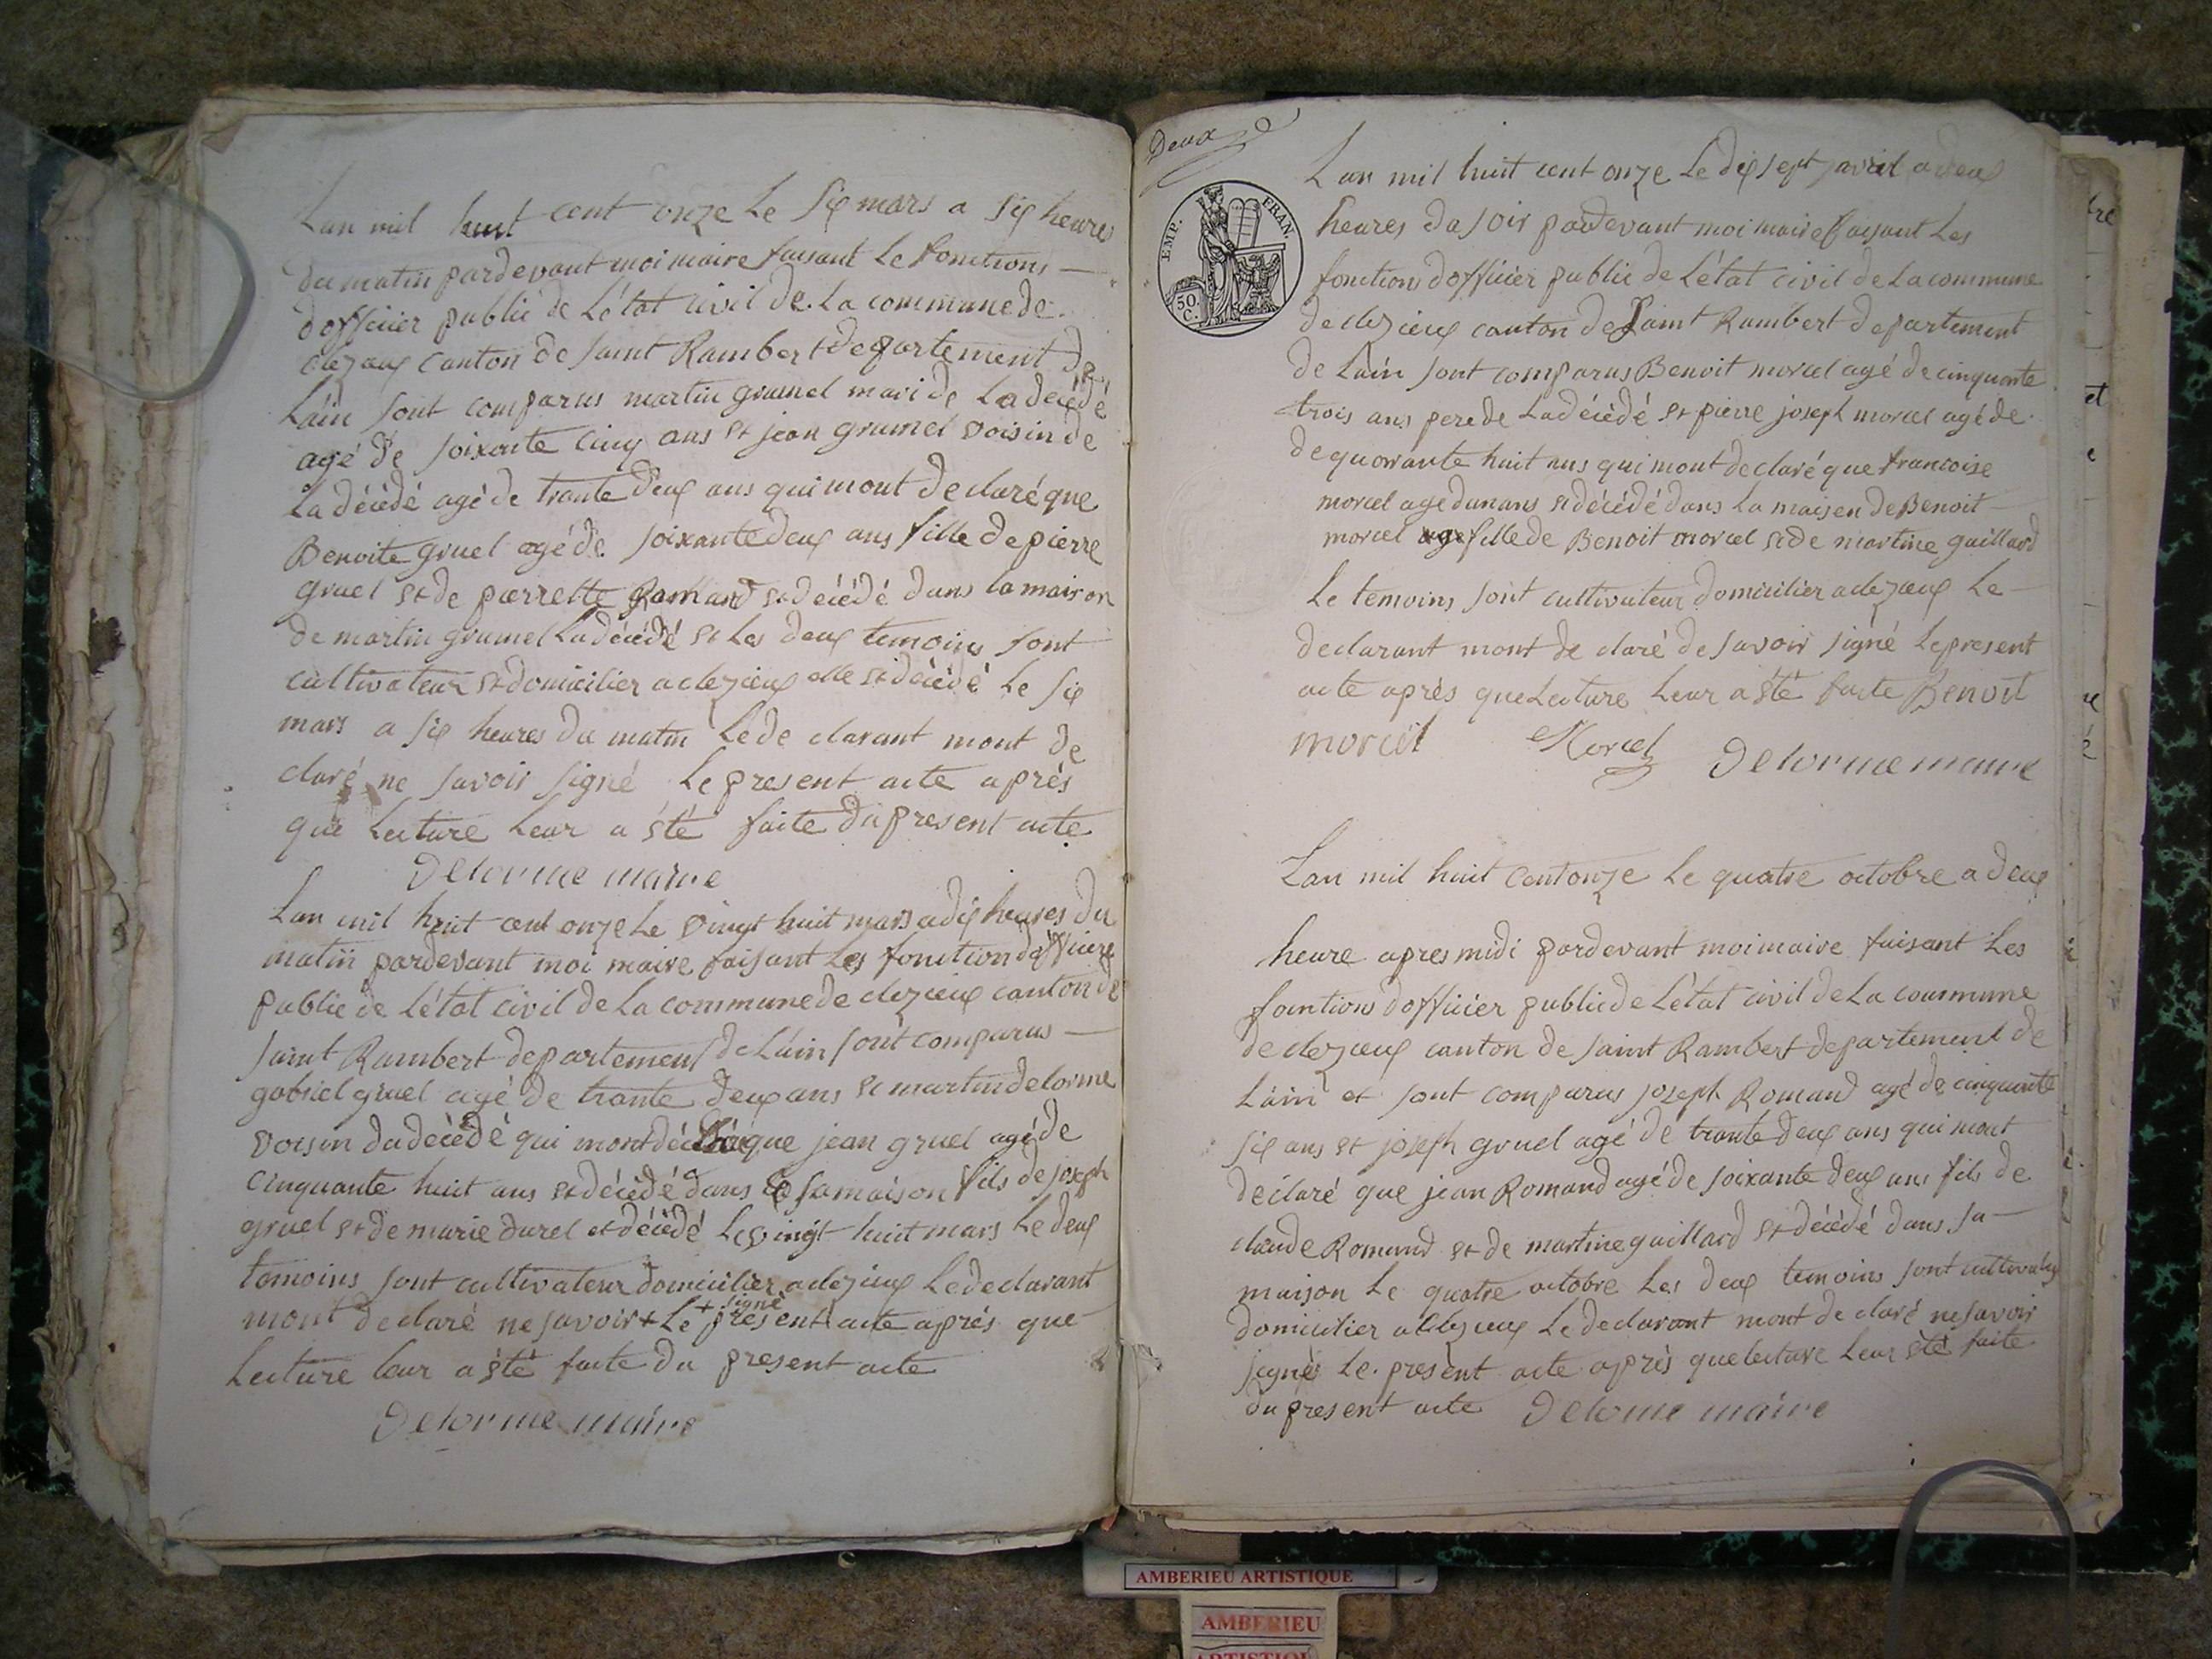 Lan mil huit cent onze Le Six mars a Six heures
du matin pardevant moi maire faisant Le fonctions
dofficier publie de Létat civil de La commune de
clezieux canton de saint Rambert departement de
Lain sont comparus martin grumel mari de La décédé
agé de soixante cinq ans et jean grumel voisin de
La décédé agé de trante deux ans qui mont declaré que
Benoite gruel agé de soixante deux ans fille de pierre
gruel et de pierrette Romand et décédé dans la maison
de martin grumel La décédé et Les deux temoins sont
cultivateur et domicilier a clezieux elle et décédé Le six
mars a six heures du matin Le de clarant mont de
claré ne savoir signé Le present acte après
que Lecture Leur a été faite du present acte
Delorme maire
Lan mil huit cent onze Le vingt huit mars a dix heures du
matin pardevant moi maire faisant Les fonction dofficier
publie de Létat civil de La commune de clezieux canton de
saint Rambert departement de Lain sont comparus
gabriel gruel agé de trante deux ans et martin delorme
voisin du décédé qui mont déclaré que jean gruel agé de
cinquante huit ans et décédé dans sa maison fils de joseph
gruel et de marie durel et décédé Le vingt huit mars Le deux
temoins sont cultivateur domicilier a clezieux Le declarant
+ signé
mont declaré ne savoir + Le present acte après que
Lecture leur a été faite du present acte
Delorme maire
Deux
EMP. FRAN.
50 C.
Lan mil huit cent onze Le dix sept avril a deux
heures du soir pardevant moi maire faisant Les
fonctions dofficier publie de Létat civil de La commune
de clezieux canton de saint Rambert departement
de Lain sont comparus Benoit morcel agé de cinquante
trois ans pere de La décédé et pierre joseph morcel agé de
de quarante huit ans qui mont declaré que francoise
morcel age dun ans et décédé dans La maison de Benoit
morcel fille de Benoit morcel et de martine gaillard
Le temoins sont cultivateur domicilier a clezieux Le
declarant mont de claré de savoir signé Le present
acte après que Lecture Leur a été faite Benoit
morcel Morcel Delorme maire
Lan mil huit cent onze Le quatre octobre a deux
heure apres midi pardevant moi maire faisant Les
fonctions dofficier publie de Létat civil de La commune
de clezieux canton de saint Rambert departement de
Lain et sont comparus joseph Romand agé de cinquante
six ans et joseph gruel agé de trante deux ans qui mont
déclaré que jean Romand agé de soixante deux ans fils de
claude Romand et de martine gaillard et décédé dans sa
maison Le quatre octobre Les deux temoins sont cultivateur
domicilier a clezieux Le declarant mont de claré ne savoir
signé Le present acte après que lecture Leur été faite
du present acte Delorme maire
AMBERIEU ARTISTIQUE
AMBERIEU
ARTISTIQUE